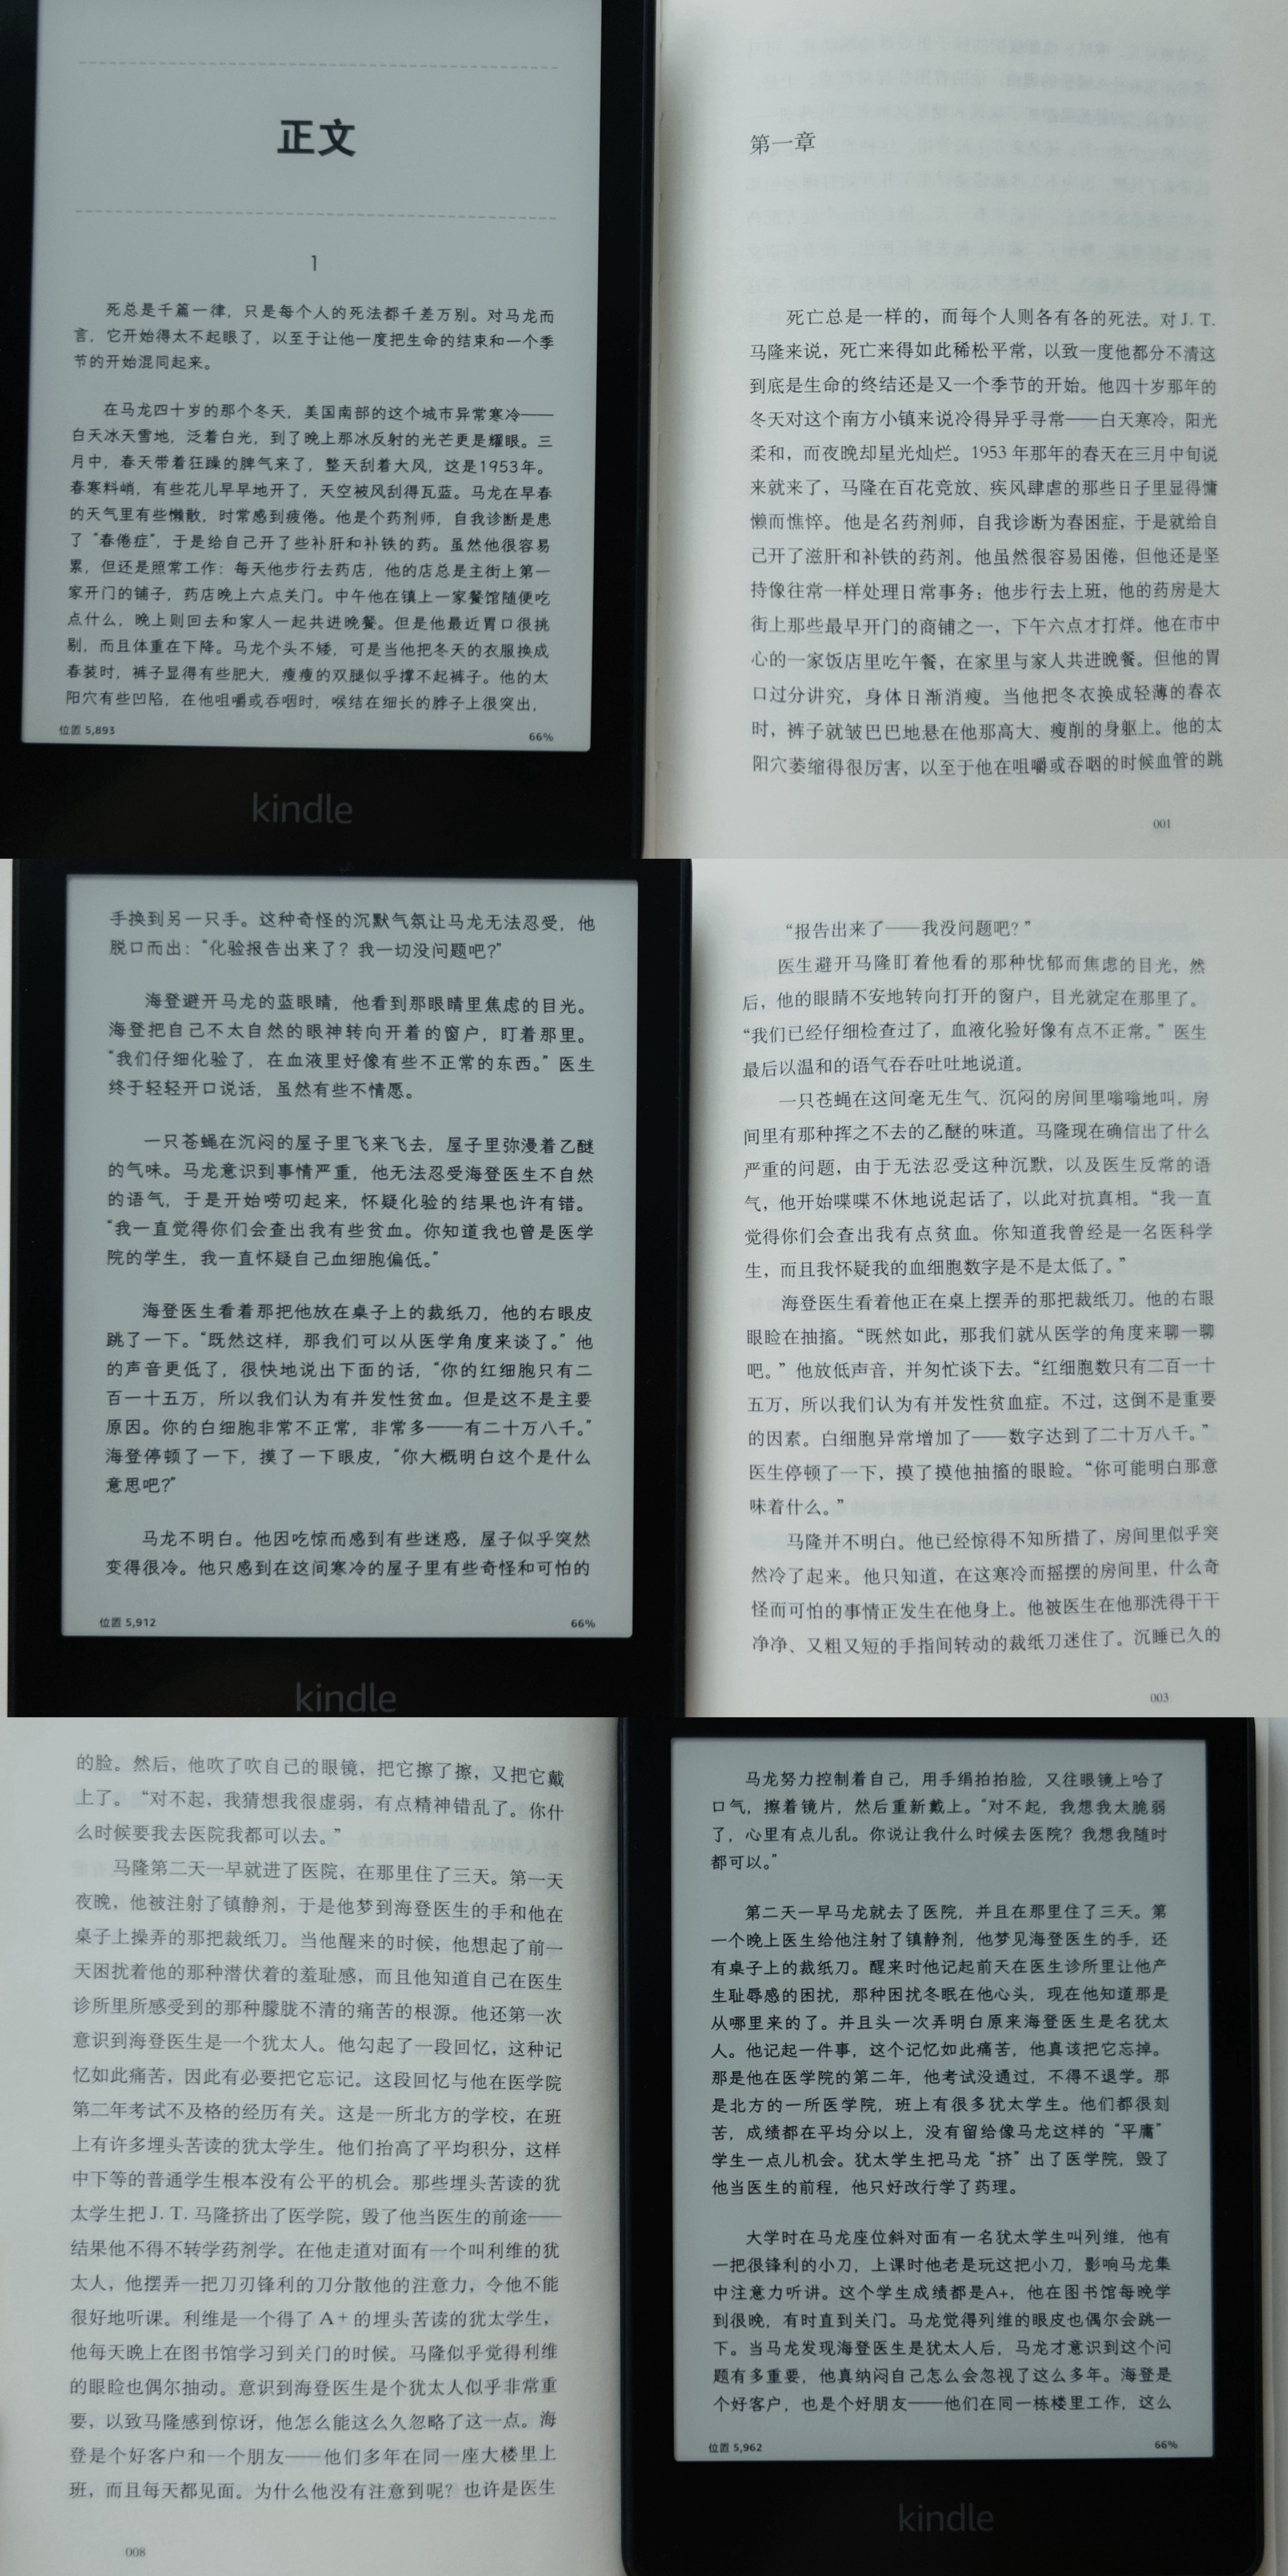 正文
1
死总是千篇一律，只是每个人的死法都千差万别。对马龙而
言，它开始得太不起眼了，以至于让他一度把生命的结束和一个季
节的开始混同起来。
在马龙四十岁的那个冬天，美国南部的这个城市异常寒冷——
白天冰天雪地，泛着白光，到了晚上那冰反射的光芒更是耀眼。三
月中，春天带着狂躁的脾气来了，整天刮着大风，这是1953年。
春寒料峭，有些花儿早早地开了，天空被风刮得瓦蓝。马龙在早春
的天气里有些懒散，时常感到疲倦。他是个药剂师，自我诊断是患
了“春倦症”，于是给自己开了些补肝和补铁的药。虽然他很容易
累，但还是照常工作：每天他步行去药店，他的店总是主街上第一
家开门的铺子，药店晚上六点关门。中午他在镇上一家餐馆随便吃
点什么，晚上则回去和家人一起共进晚餐。但是他最近胃口很挑
剔，而且体重在下降。马龙个头不矮，可是当他把冬天的衣服换成
春装时，裤子显得有些肥大，瘦瘦的双腿似乎撑不起裤子。他的太
阳穴有些凹陷，在他咀嚼或吞咽时，喉结在细长的脖子上很突出，
位置 5,893
66%
kindle
第一章
死亡总是一样的，而每个人则各有各的死法。对 J. T.
马隆来说，死亡来得如此稀松平常，以致一度他都分不清这
到底是生命的终结还是又一个季节的开始。他四十岁那年的
冬天对这个南方小镇来说冷得异乎寻常——白天寒冷，阳光
柔和，而夜晚却星光灿烂。1953 年那年的春天在三月中旬说
来就来了，马隆在百花竞放、疾风肆虐的那些日子里显得慵
懒而憔悴。他是名药剂师，自我诊断为春困症，于是就给自
己开了滋肝和补铁的药剂。他虽然很容易困倦，但他还是坚
持像往常一样处理日常事务；他步行去上班，他的药房是大
街上那些最早开门的商铺之一，下午六点才打烊。他在市中
心的一家饭店里吃午餐，在家里与家人共进晚餐。但他的胃
口过分讲究，身体日渐消瘦。当他把冬衣换成轻薄的春衣
时，裤子就皱巴巴地悬在他那高大、瘦削的身躯上。他的太
阳穴萎缩得很厉害，以至于他在咀嚼或吞咽的时候血管的跳
001
手换到另一只手。这种奇怪的沉默气氛让马龙无法忍受，他
脱口而出：“化验报告出来了？我一切没问题吧？”
海登避开马龙的蓝眼睛，他看到那眼睛里焦虑的目光。
海登把自己不太自然的眼神转向开着的窗户，盯着那里。
“我们仔细化验了，在血液里好像有些不正常的东西。”医生
终于轻轻开口说话，虽然有些不情愿。
一只苍蝇在沉闷的屋子里飞来飞去，屋子里弥漫着乙醚
的气味。马龙意识到事情严重，他无法忍受海登医生不自然
的语气，于是开始唠叨起来，怀疑化验的结果也许有错。
“我一直觉得你们会查出我有些贫血。你知道我也曾是医学
院的学生，我一直怀疑自己血细胞偏低。”
海登医生看着那把他放在桌子上的裁纸刀，他的右眼皮
跳了一下。“既然这样，那我们可以从医学角度来谈了。”他
的声音更低了，很快地说出下面的话，“你的红细胞只有二
百一十五万，所以我们认为有并发性贫血。但是这不是主要
原因。你的白细胞非常不正常，非常多——有二十万八千。”
海登停顿了一下，摸了一下眼皮，“你大概明白这个是什么
意思吧？”
马龙不明白。他因吃惊而感到有些迷惑，屋子似乎突然
变得很冷。他只感到在这间寒冷的屋子里有些奇怪和可怕的
位置 5,912
66%
kindle
“报告出来了——我没问题吧？”
医生避开马隆盯着他看的那种忧郁而焦虑的目光，然
后，他的眼睛不安地转向打开的窗户，目光就定在那里了。
“我们已经仔细检查过了，血液化验好像有点不正常。”医生
最后以温和的语气吞吞吐吐地说道。
一只苍蝇在这间毫无生气、沉闷的房间里嗡嗡地叫，房
间里有那种挥之不去的乙醚的味道。马隆现在确信出了什么
严重的问题，由于无法忍受这种沉默，以及医生反常的语
气，他开始喋喋不休地说起话了，以此对抗真相。“我一直
觉得你们会查出我有点贫血。你知道我曾经是一名医科学
生，而且我怀疑我的血细胞数字是不是太低了。”
海登医生看着他正在桌上摆弄的那把裁纸刀。他的右眼
眼睑在抽搐。“既然如此，那我们就从医学的角度来聊一聊
吧。”他放低声音，并匆忙谈下去。“红细胞数只有二百一十
五万，所以我们认为有并发性贫血症。不过，这倒不是重要
的因素。白细胞异常增加了——数字达到了二十万八千。”
医生停顿了一下，摸了摸他抽搐的眼睑。“你可能明白那意
味着什么。”
马隆并不明白。他已经惊得不知所措了，房间里似乎突
然冷了起来。他只知道，在这寒冷而摇摆的房间里，什么奇
怪而可怕的事情正发生在他身上。他被医生在他那洗得干干
净净、又粗又短的手指间转动的裁纸刀迷住了。沉睡已久的
003
的脸。然后，他吹了吹自己的眼镜，把它擦了擦，又把它戴
上了。“对不起，我猜想我很虚弱，有点精神错乱了。你什
么时候要我去医院我都可以去。”
马隆第二天一早就进了医院，在那里住了三天。第一天
夜晚，他被注射了镇静剂，于是他梦到海登医生的手和他在
桌子上操弄的那把裁纸刀。当他醒来的时候，他想起了前一
天困扰着他的那种潜伏着的羞耻感，而且他知道自己在医生
诊所里所感受到的那种朦胧不清的痛苦的根源。他还第一次
意识到海登医生是一个犹太人。他勾起了一段回忆，这种记
忆如此痛苦，因此有必要把它忘记。这段回忆与他在医学院
第二年考试不及格的经历有关。这是一所北方的学校，在班
上有许多埋头苦读的犹太学生。他们抬高了平均积分，这样
中下等的普通学生根本没有公平的机会。那些埋头苦读的犹
太学生把 J. T. 马隆挤出了医学院，毁了他当医生的前途——
结果他不得不转学药剂学。在他走道对面有一个叫利维的犹
太人，他摆弄一把刀刃锋利的刀分散他的注意力，令他不能
很好地听课。利维是一个得了 A + 的埋头苦读的犹太学生，
他每天晚上在图书馆学习到关门的时候。马隆似乎觉得利维
的眼睑也偶尔抽动。意识到海登医生是个犹太人似乎非常重
要，以致马隆感到惊讶，他怎么能这么久忽略了这一点。海
登是个好客户和一个朋友——他们多年在同一座大楼里上
班，而且每天都见面。为什么他没有注意到呢？也许是医生
008
马龙努力控制着自己，用手绢拍拍脸，又往眼镜上哈了
口气，擦着镜片，然后重新戴上。“对不起，我想我太脆弱
了，心里有点儿乱。你说让我什么时候去医院？我想我随时
都可以。”
第二天一早马龙就去了医院，并且在那里住了三天。第
一个晚上医生给他注射了镇静剂，他梦见海登医生的手，还
有桌子上的裁纸刀。醒来时他记起前天在医生诊所里让他产
生耻辱感的困扰，那种困扰冬眠在他心头，现在他知道那是
从哪里来的了。并且头一次弄明白原来海登医生是名犹太
人。他记起一件事，这个记忆如此痛苦，他真该把它忘掉。
那是他在医学院的第二年，他考试没通过，不得不退学。那
是北方的一所医学院，班上有很多犹太学生。他们都很刻
苦，成绩都在平均分以上，没有留给像马龙这样的“平庸”
学生一点儿机会。犹太学生把马龙“挤”出了医学院，毁了
他当医生的前程，他只好改行学了药理。
大学时在马龙座位斜对面有一名犹太学生叫列维，他有
一把很锋利的小刀，上课时他老是玩这把小刀，影响马龙集
中注意力听讲。这个学生成绩都是A+，他在图书馆每晚学
到很晚，有时直到关门。马龙觉得列维的眼皮也偶尔会跳一
下。当马龙发现海登医生是犹太人后，马龙才意识到这个问
题有多重要，他真纳闷自己怎么会忽视了这么多年。海登是
个好客户，也是个好朋友——他们在同一栋楼里工作，这么
位置 5,962
66%
kindle